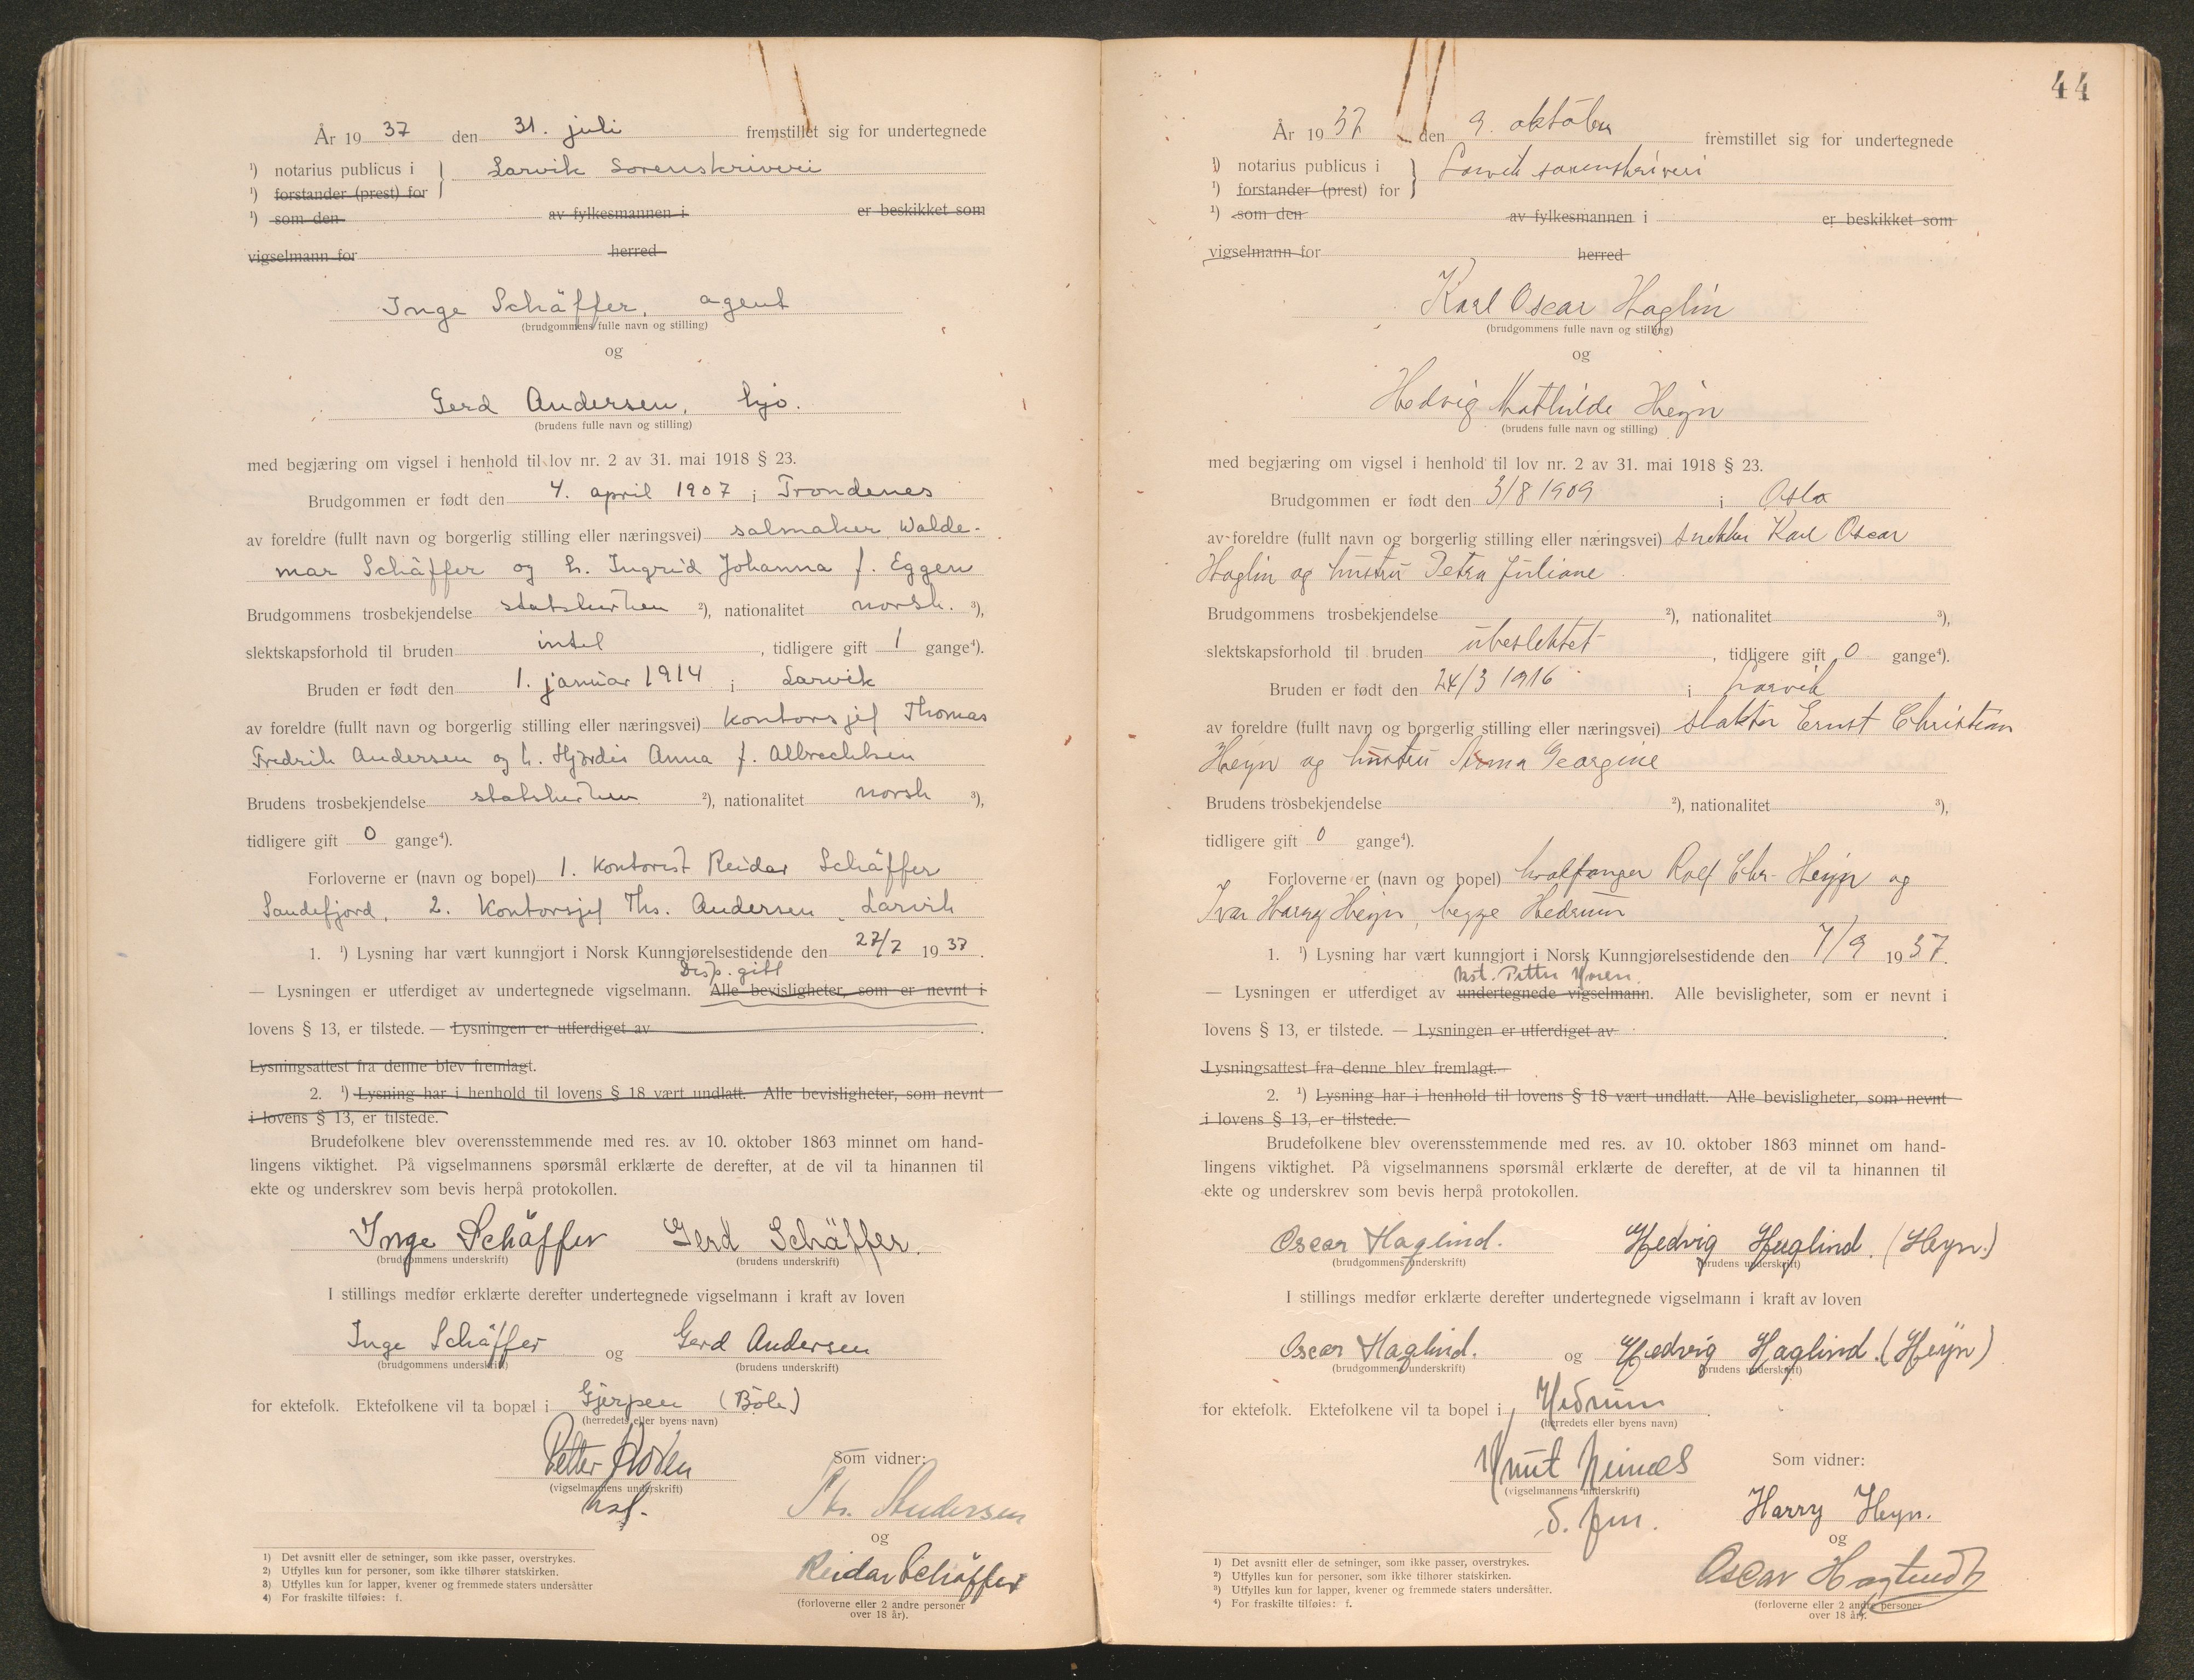 År 1937 den 31. juli fremstillet sig for undertegnede
¹) notarius publicus i } Larvik sorenskriveri
¹) forstander (prest) for
¹) som den av fylkesmannen i er beskikket som
vigselmann for herred
Inge Schäffer, agent
(brudgommens fulle navn og stilling)
og
Gerd Andersen, hjv.
(brudens fulle navn og stilling)
med begjæring om vigsel i henhold til lov nr. 2 av 31. mai 1918 § 23.
Brudgommen er født den 4. april 1907 i Trondenes
av foreldre (fullt navn og borgerlig stilling eller næringsvei) salmaker Walde-
mar Schäffer og h. Ingrid Johanna f. Eggen
Brudgommens trosbekjendelse statskirken ²), nationalitet norsk. ³),
slektskapsforhold til bruden intet , tidligere gift 1 gange⁴).
Bruden er født den 1. januar 1914 i Larvik
av foreldre (fullt navn og borgerlig stilling eller næringsvei) kontorsjef Thomas
Fredrik Andersen og h. Hjørdis Anna f. Albrechtsen
Brudens trosbekjendelse statskirken ²), nationalitet norsk ³),
tidligere gift 0 gange⁴).
Forloverne er (navn og bopel) 1. kontorist Reidar Schäffer
Sandefjord, 2. Kontorsjef Ths. Andersen, Larvik
1. ¹) Lysning har vært kunngjort i Norsk Kunngjørelsestidende den 27/7 1937.
Disp. gitt
— Lysningen er utferdiget av undertegnede vigselmann. Alle bevisligheter, som er nevnt i
lovens § 13, er tilstede. — Lysningen er utferdiget av .
Lysningsattest fra denne blev fremlagt.
2. ¹) Lysning har i henhold til lovens § 18 vært undlatt. Alle bevisligheter, som nevnt
i lovens § 13, er tilstede.
Brudefolkene blev overensstemmende med res. av 10. oktober 1863 minnet om hand-
lingens viktighet. På vigselmannens spørsmål erklærte de derefter, at de vil ta hinannen til
ekte og underskrev som bevis herpå protokollen.
Inge Schäffer Gerd Schäffer.
(brudgommens underskrift) (brudens underskrift)
I stillings medfør erklærte derefter undertegnede vigselmann i kraft av loven
Inge Schäffer og Gerd Andersen
(brudgommens underskrift) (brudens underskrift)
for ektefolk. Ektefolkene vil ta bopæl i Gjerpen (Böle)
(herredets eller byens navn)
Petter
(vigselmannens underskrift)
kst.
Som vidner:
Ths. Andersen
og
Reidar Schäffer
(forloverne eller 2 andre personer
over 18 år).
1) Det avsnitt eller de setninger, som ikke passer, overstrykes.
2) Utfylles kun for personer, som ikke tilhører statskirken.
3) Utfylles kun for lapper, kvener og fremmede staters undersåtter
4) For fraskilte tilføies: f.
44
År 1937 den 9. oktober fremstillet sig for undertegnede
¹) notarius publicus i } Larvik sorenskriveri
¹) forstander (prest) for
¹) som den av fylkesmannen i er beskikket som
vigselmann for herred
Karl Oscar Haglin
(brudgommens fulle navn og stilling)
og
Hedvig Mathilde Heyn
(brudens fulle navn og stilling)
med begjæring om vigsel i henhold til lov nr. 2 av 31. mai 1918 § 23.
Brudgommen er født den 3/8 1909 i Oslo
av foreldre (fullt navn og borgerlig stilling eller næringsvei) snekker Karl Oscar
Haglin og hustru Petra Juliane
Brudgommens trosbekjendelse ²), nationalitet ³),
slektskapsforhold til bruden ubeslektet , tidligere gift 0 gange⁴).
Bruden er født den 24/3 1916 i Larvik
av foreldre (fullt navn og borgerlig stilling eller næringsvei) slakter Ernst Christian
Heyn og hustru Anna Georgine
Brudens trosbekjendelse ²), nationalitet ³),
tidligere gift 0 gange⁴).
Forloverne er (navn og bopel) hvalfanger Rolf Chr. Heyn og
Ivar Harry Heyn, begge Hedrum
1. ¹) Lysning har vært kunngjort i Norsk Kunngjørelsestidende den 7/9 1937.
kst. Petter
— Lysningen er utferdiget av undertegnede vigselmann. Alle bevisligheter, som er nevnt i
lovens § 13, er tilstede. — Lysningen er utferdiget av .
Lysningsattest fra denne blev fremlagt.
2. ¹) Lysning har i henhold til lovens § 18 vært undlatt. Alle bevisligheter, som nevnt
i lovens § 13, er tilstede.
Brudefolkene blev overensstemmende med res. av 10. oktober 1863 minnet om hand-
lingens viktighet. På vigselmannens spørsmål erklærte de derefter, at de vil ta hinannen til
ekte og underskrev som bevis herpå protokollen.
Oscar Haglind. Hedvig Haglind. (Heyn.)
(brudgommens underskrift) (brudens underskrift)
I stillings medfør erklærte derefter undertegnede vigselmann i kraft av loven
Oscar Haglind. og Hedvig Haglind. (Heyn)
(brudgommens underskrift) (brudens underskrift)
for ektefolk. Ektefolkene vil ta bopel i Hedrum .
(herredets eller byens navn)
Knut
(vigselmannens underskrift)
Som vidner:
Harry Heyn.
og
Oscar
(forloverne eller 2 andre personer
over 18 år).
¹) Det avsnitt eller de setninger, som ikke passer, overstrykes.
²) Utfylles kun for personer, som ikke tilhører statskirken.
³) Utfylles kun for lapper, kvener og fremmede staters undersåtter.
⁴) For fraskilte tilføies: f.